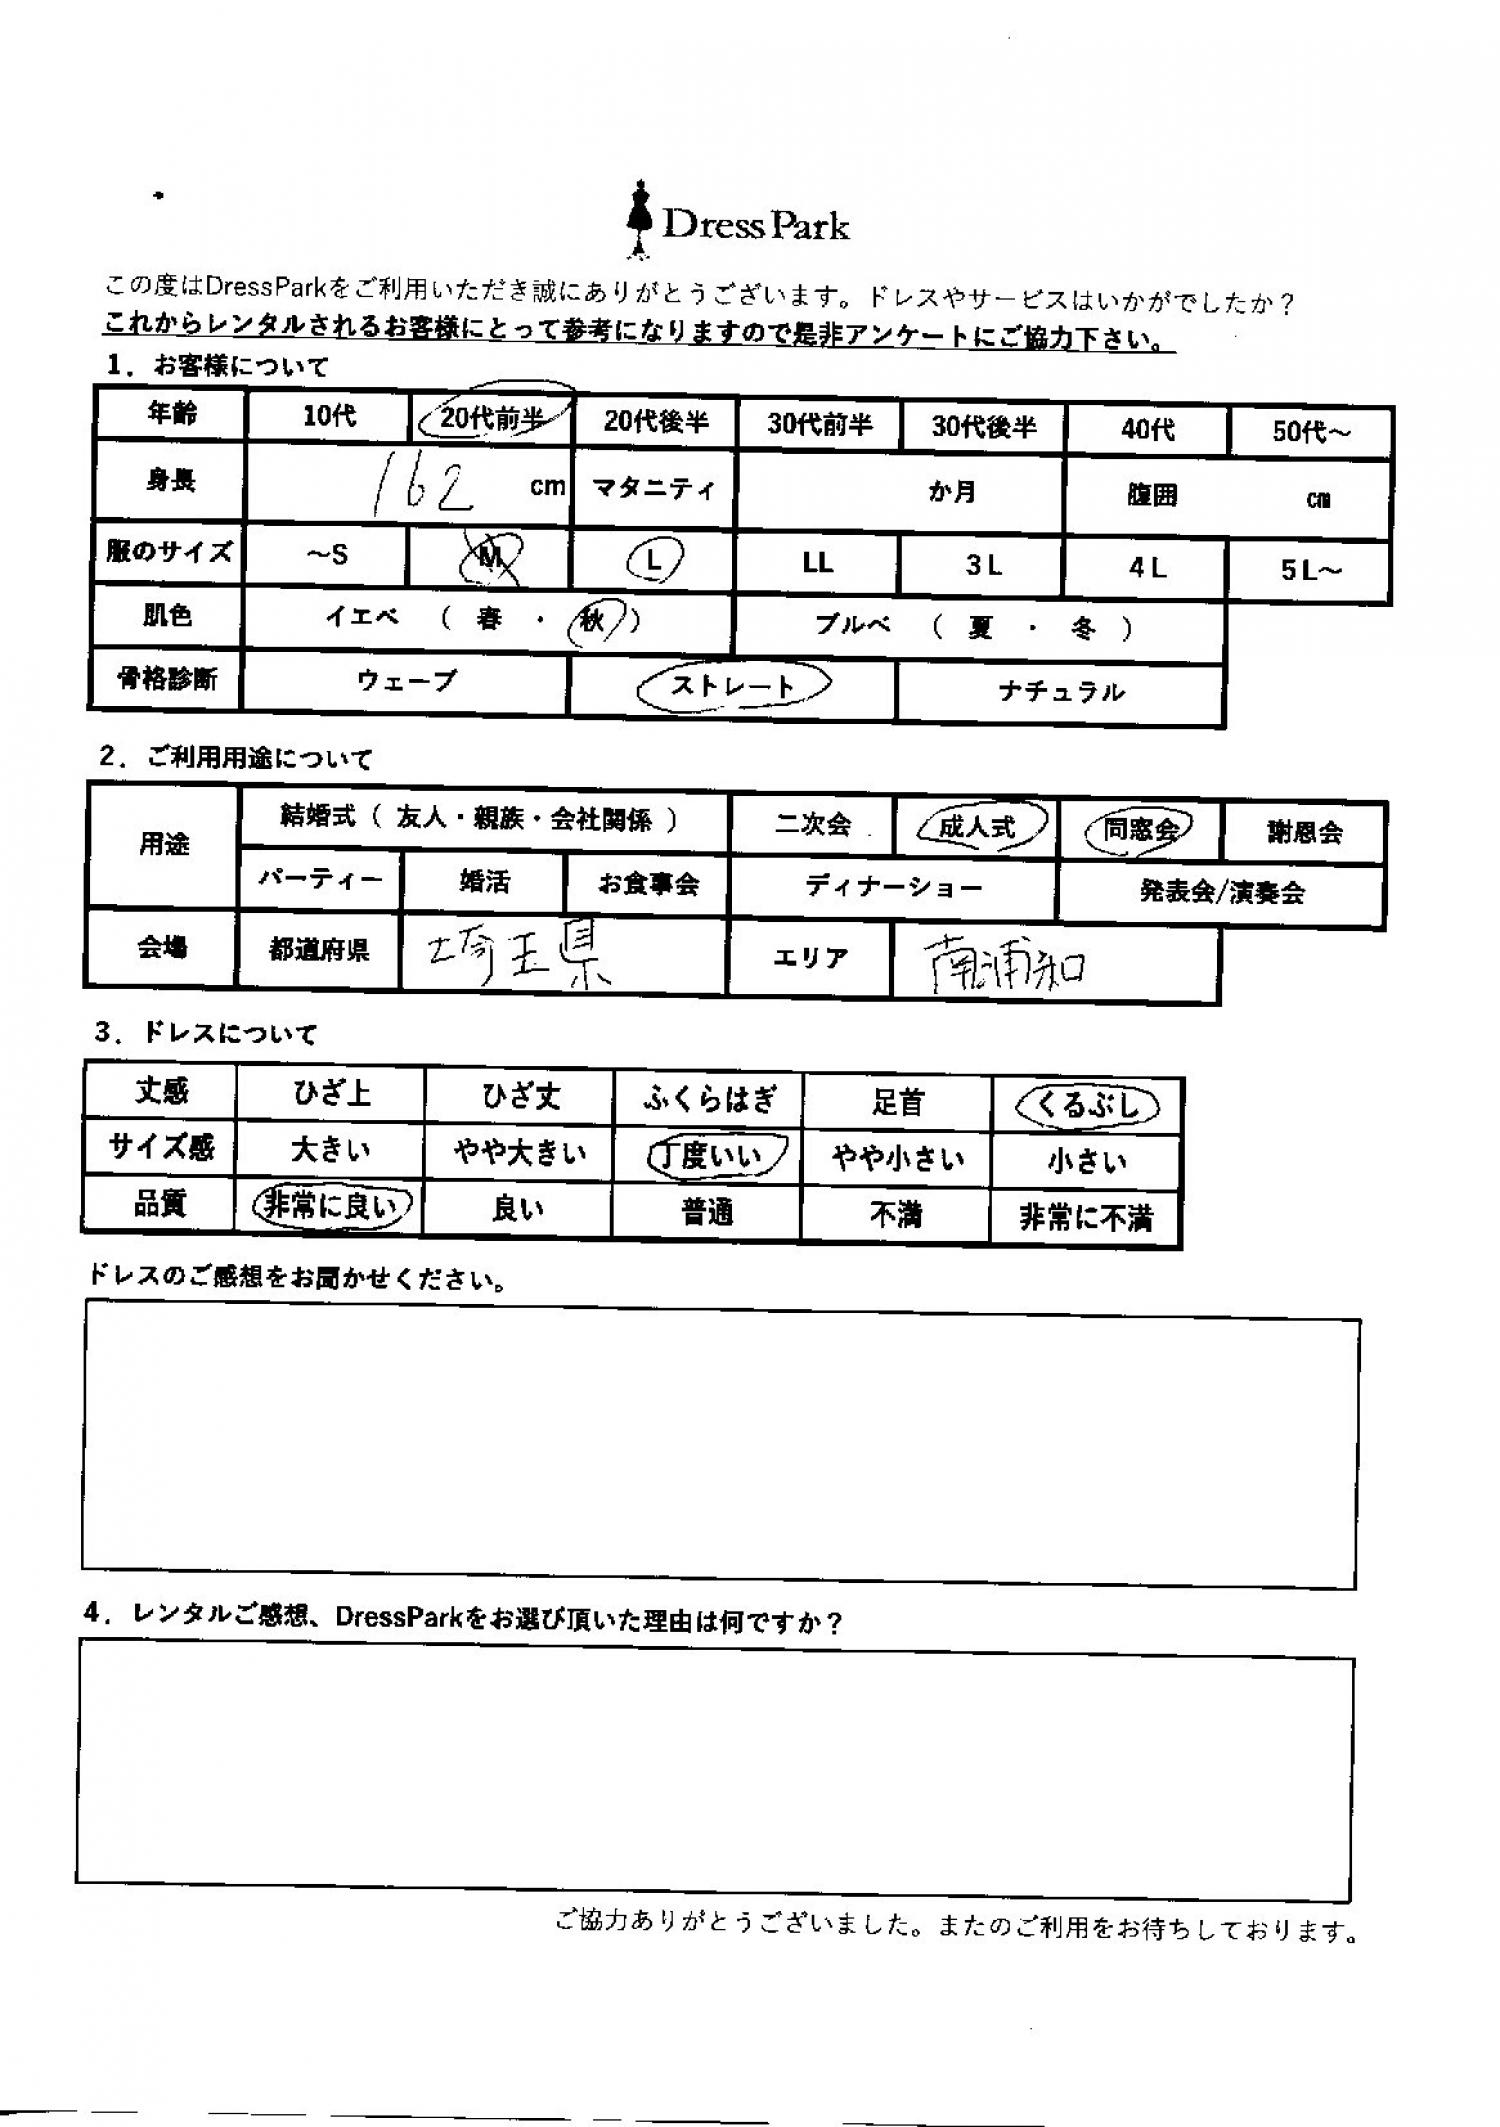 DressPark
この度はDressParkをご利用いただき誠にありがとうございます。ドレスやサービスはいかがでしたか？
これからレンタルされるお客様にとって参考になりますので是非アンケートにご協力下さい。
1．お客様について
年齢 10代 20代前半 20代後半 30代前半 30代後半 40代 50代～
身長 162 cm マタニティ か月 腹囲 cm
服のサイズ ～S M L LL 3L 4L 5L～
肌色 イエベ （ 春 ・ 秋 ） ブルベ （ 夏 ・ 冬 ）
骨格診断 ウェーブ ストレート ナチュラル
2．ご利用用途について
用途 結婚式（ 友人・親族・会社関係 ） 二次会 成人式 同窓会 謝恩会
パーティー 婚活 お食事会 ディナーショー 発表会/演奏会
会場 都道府県 埼玉県 エリア 南浦和
3．ドレスについて
丈感 ひざ上 ひざ丈 ふくらはぎ 足首 くるぶし
サイズ感 大きい やや大きい 丁度いい やや小さい 小さい
品質 非常に良い 良い 普通 不満 非常に不満
ドレスのご感想をお聞かせください。
4．レンタルご感想、DressParkをお選び頂いた理由は何ですか？
ご協力ありがとうございました。またのご利用をお待ちしております。